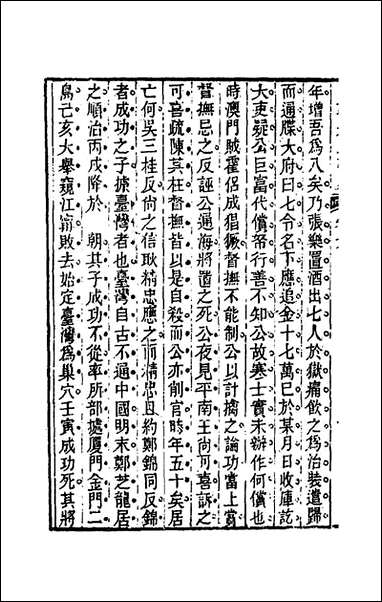 年增吾爲八矣乃張樂置酒出七人於獄痛飲之爲治裝遣歸
而通牒大府曰七令名下應追金十七萬已於某月日收庫訖
大吏疑公巨富代償帑行善不知公故寒士實未辦作何償也
時澳門賊霍侶成猖獗督撫不能制公以計擒之論功當上賞
督撫忌之反誣公通海將置之死公夜見平南王尚可喜訴之
可喜疏陳其枉督撫皆以是自殺而公亦削官時年五十矣居
亡何吳三桂反尚之信耿精忠應之而精忠且約鄭錦同反錦
者成功之子據臺灣者也臺灣自古不通中國明末鄭芝龍居
之順治丙戌降於　朝其子成功不從率所部據厦門金門二
島己亥大舉窺江寧敗去始定臺灣爲巢穴壬寅成功死其將